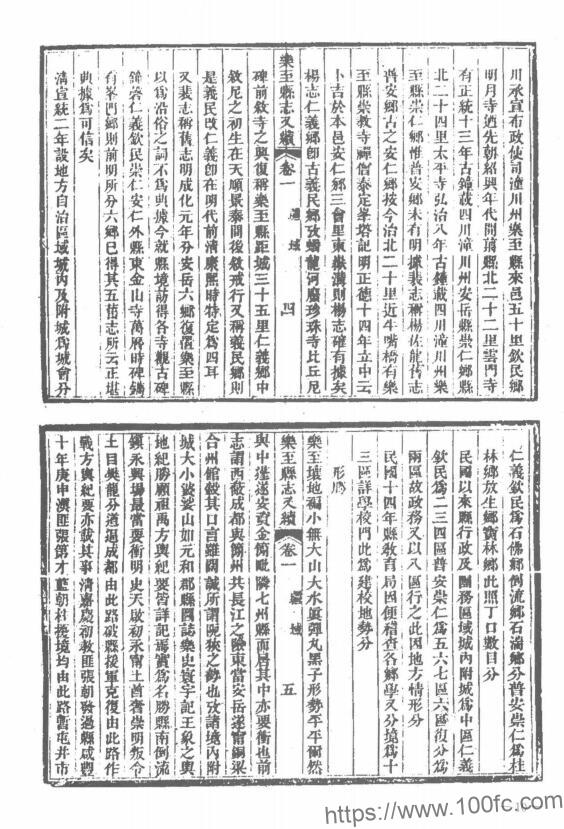 川承宣布政使司潼川州樂至縣東邑五十里欽民鄉
明月寺迺先朝紹興年代間蓋縣北二十二里雲門寺
有正統十三年古鐘載四川潼川州安岳縣崇仁鄉縣
北二十四里太平寺弘治八年古鐘載四川潼川州樂
至縣崇仁鄉惟普安鄉未有明據裴志稱楊佐龍舊志
普安鄉古之安仁鄉按今治北二十里近牛嘴橋有樂
至縣崇教寺禪僧泰定峯塔記明正德十四年立中云
卜吉於本邑安仁鄉三會里東嶽溝則楊志確有據矣
楊志仁義鄉即古義民鄉攷蟠龍河廢珍珠寺比丘尼
樂至縣志又續 卷一 疆域 四
碑前敘寺之興復稱樂至縣距城三十五里仁義鄉中
敘尼之初生在天順景泰間後敘戒行又稱義民鄉則
是義民改仁義即在明代前清康熙時特定為四耳
又裴志稱舊志明成化元年分安岳六鄉復置樂至縣
以為沿俗之詞不為典據今就縣境訪得各寺觀古碑
鐘磬仁義欽民崇仁安仁外縣東金山寺萬曆時碑鐫
有峯門鄉則前明所分六鄉已得其五舊志所云正堪
典據為可信矣
清宣統二年設地方自治區域城內及附城為城會分
仁義欽民為石佛鄉倒流鄉石湍鄉分普安崇仁為桂
林鄉放生鄉寶林鄉此照丁口數目分
民國以來縣行政及團務區域城內附城為中區仁義
欽民為二三四區普安崇仁為五六七區六區復分為
兩區故政務又以八區行之此因地方情形分
民國十四年縣教育局因便稽查各鄉學又分境為十
三區詳學校門此為建校地勢分
形勝
樂至壤地褊小無大山大水眞彈丸黑子形勢平平爾然
樂至縣志又續 卷一 疆域 五
與中潼遂安資金簡毗隣七州縣而居其中亦要衝也前
志謂西儆成都與簡州共長江之險東當安岳遂甯銅梁
合州館轂其口言雖闊誠所謂阨狹之勢也攷諸境內附
城大小婆娑山如元和郡縣圖誌樂史寰宇記王象之輿
地紀勝顧祖禹方輿紀要皆詳記焉實為名勝縣南倒流
鎮永興場最當要衝明史天啟初永甯土酋奢崇明叛令
土目樊龍分道逼成都由此路破縣援軍克復由此路作
戰方輿紀要亦載其事清嘉慶初教匪張朝發過縣咸豐
十年庚申滇匪張第才藍朝柱擾境均由此路暫屯井市
https://www.100fc.com